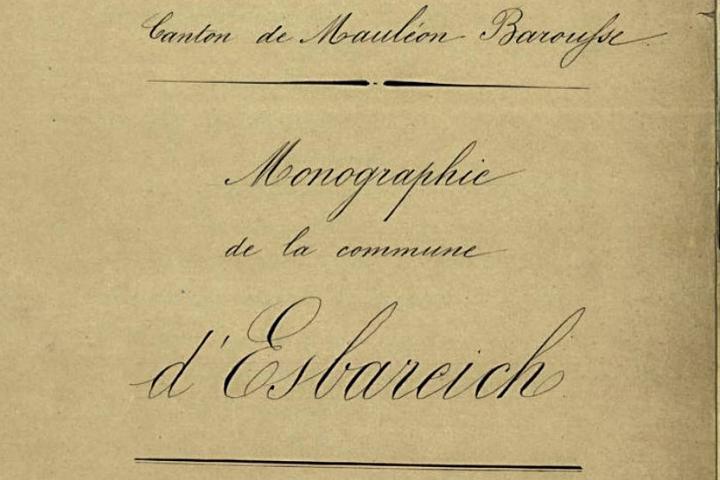 Canton de Mauléon Barousse
Monographie
de la commune
d'Esbareich